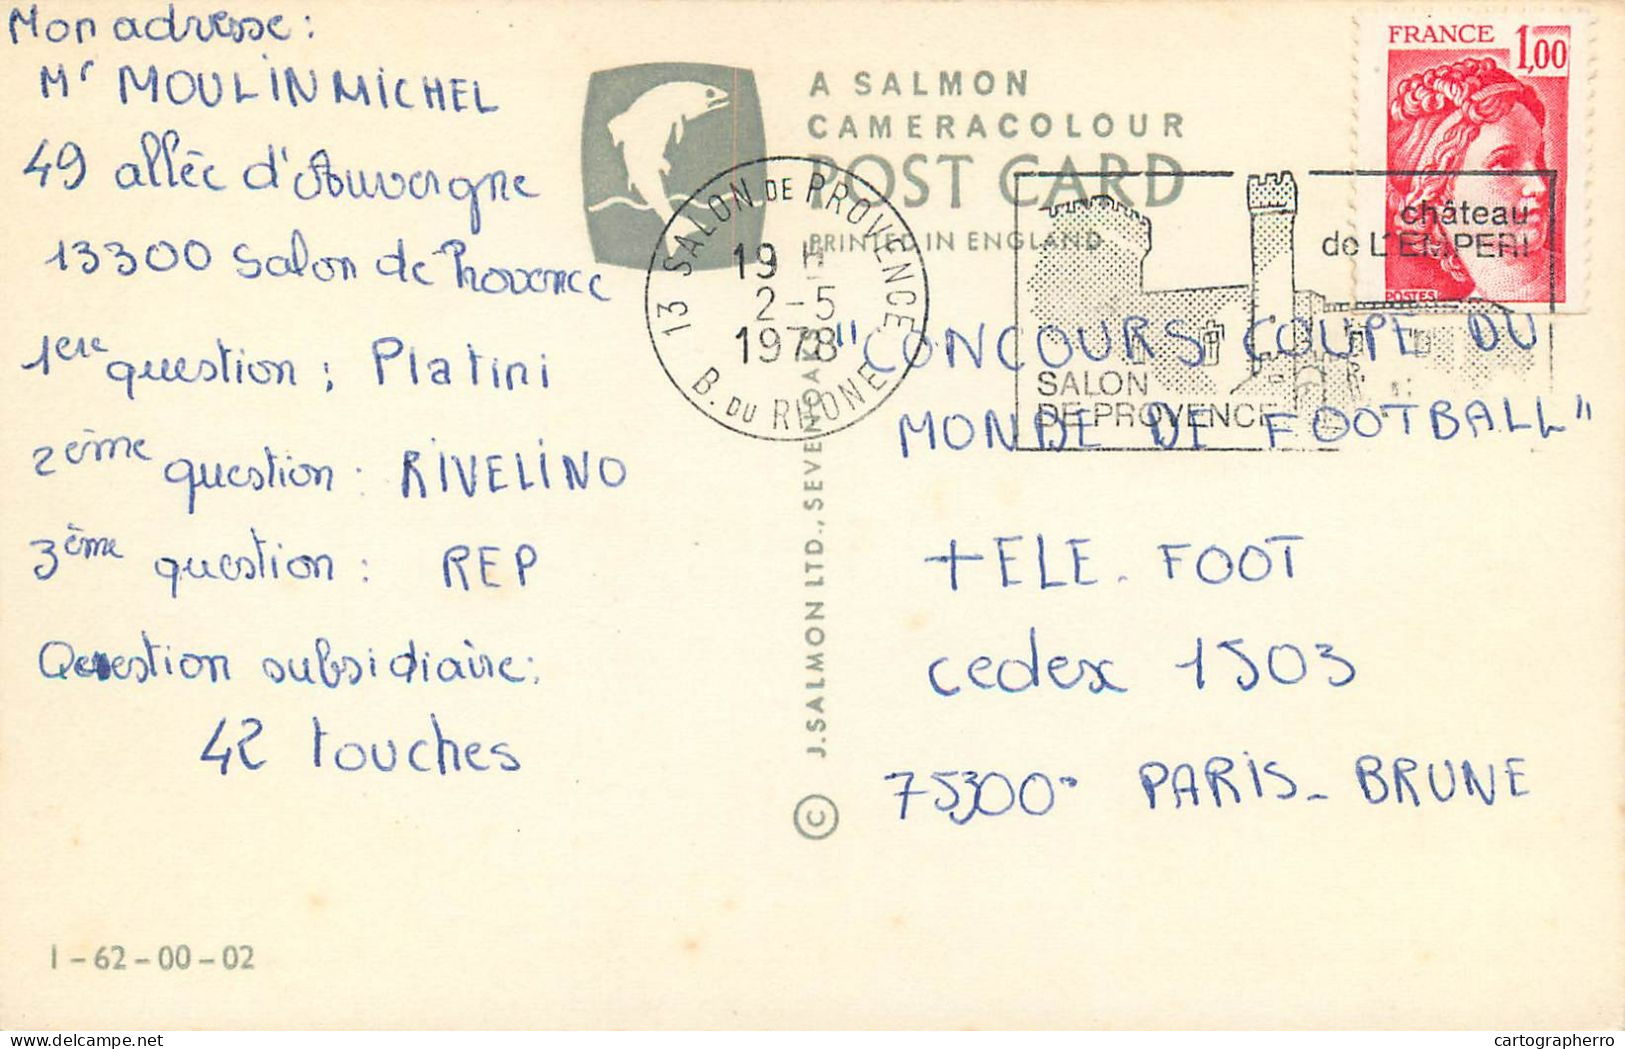 Mon adresse :
Mr MOULIN MICHEL
49 allée d'Auvergne
13300 Salon de Provence
1ere question : Platini
2ème question : RIVELINO
3ème question : REP
Question subsidiaire :
42 touches
1-62-00-02
A SALMON
CAMERACOLOUR
POST CARD
PRINTED IN ENGLAND
© J. SALMON LTD., SEVENOAKS
13 SALON DE PROVENCE
19 H
2-5
1978
B. DU RHONE
château
de L'EMPERI
SALON
DE PROVENCE
FRANCE 1,00
POSTES
"CONCOURS COUPE DU
MONDE DE FOOTBALL"
TELE. FOOT
cedex 1503
75300 PARIS - BRUNE
cartographerro